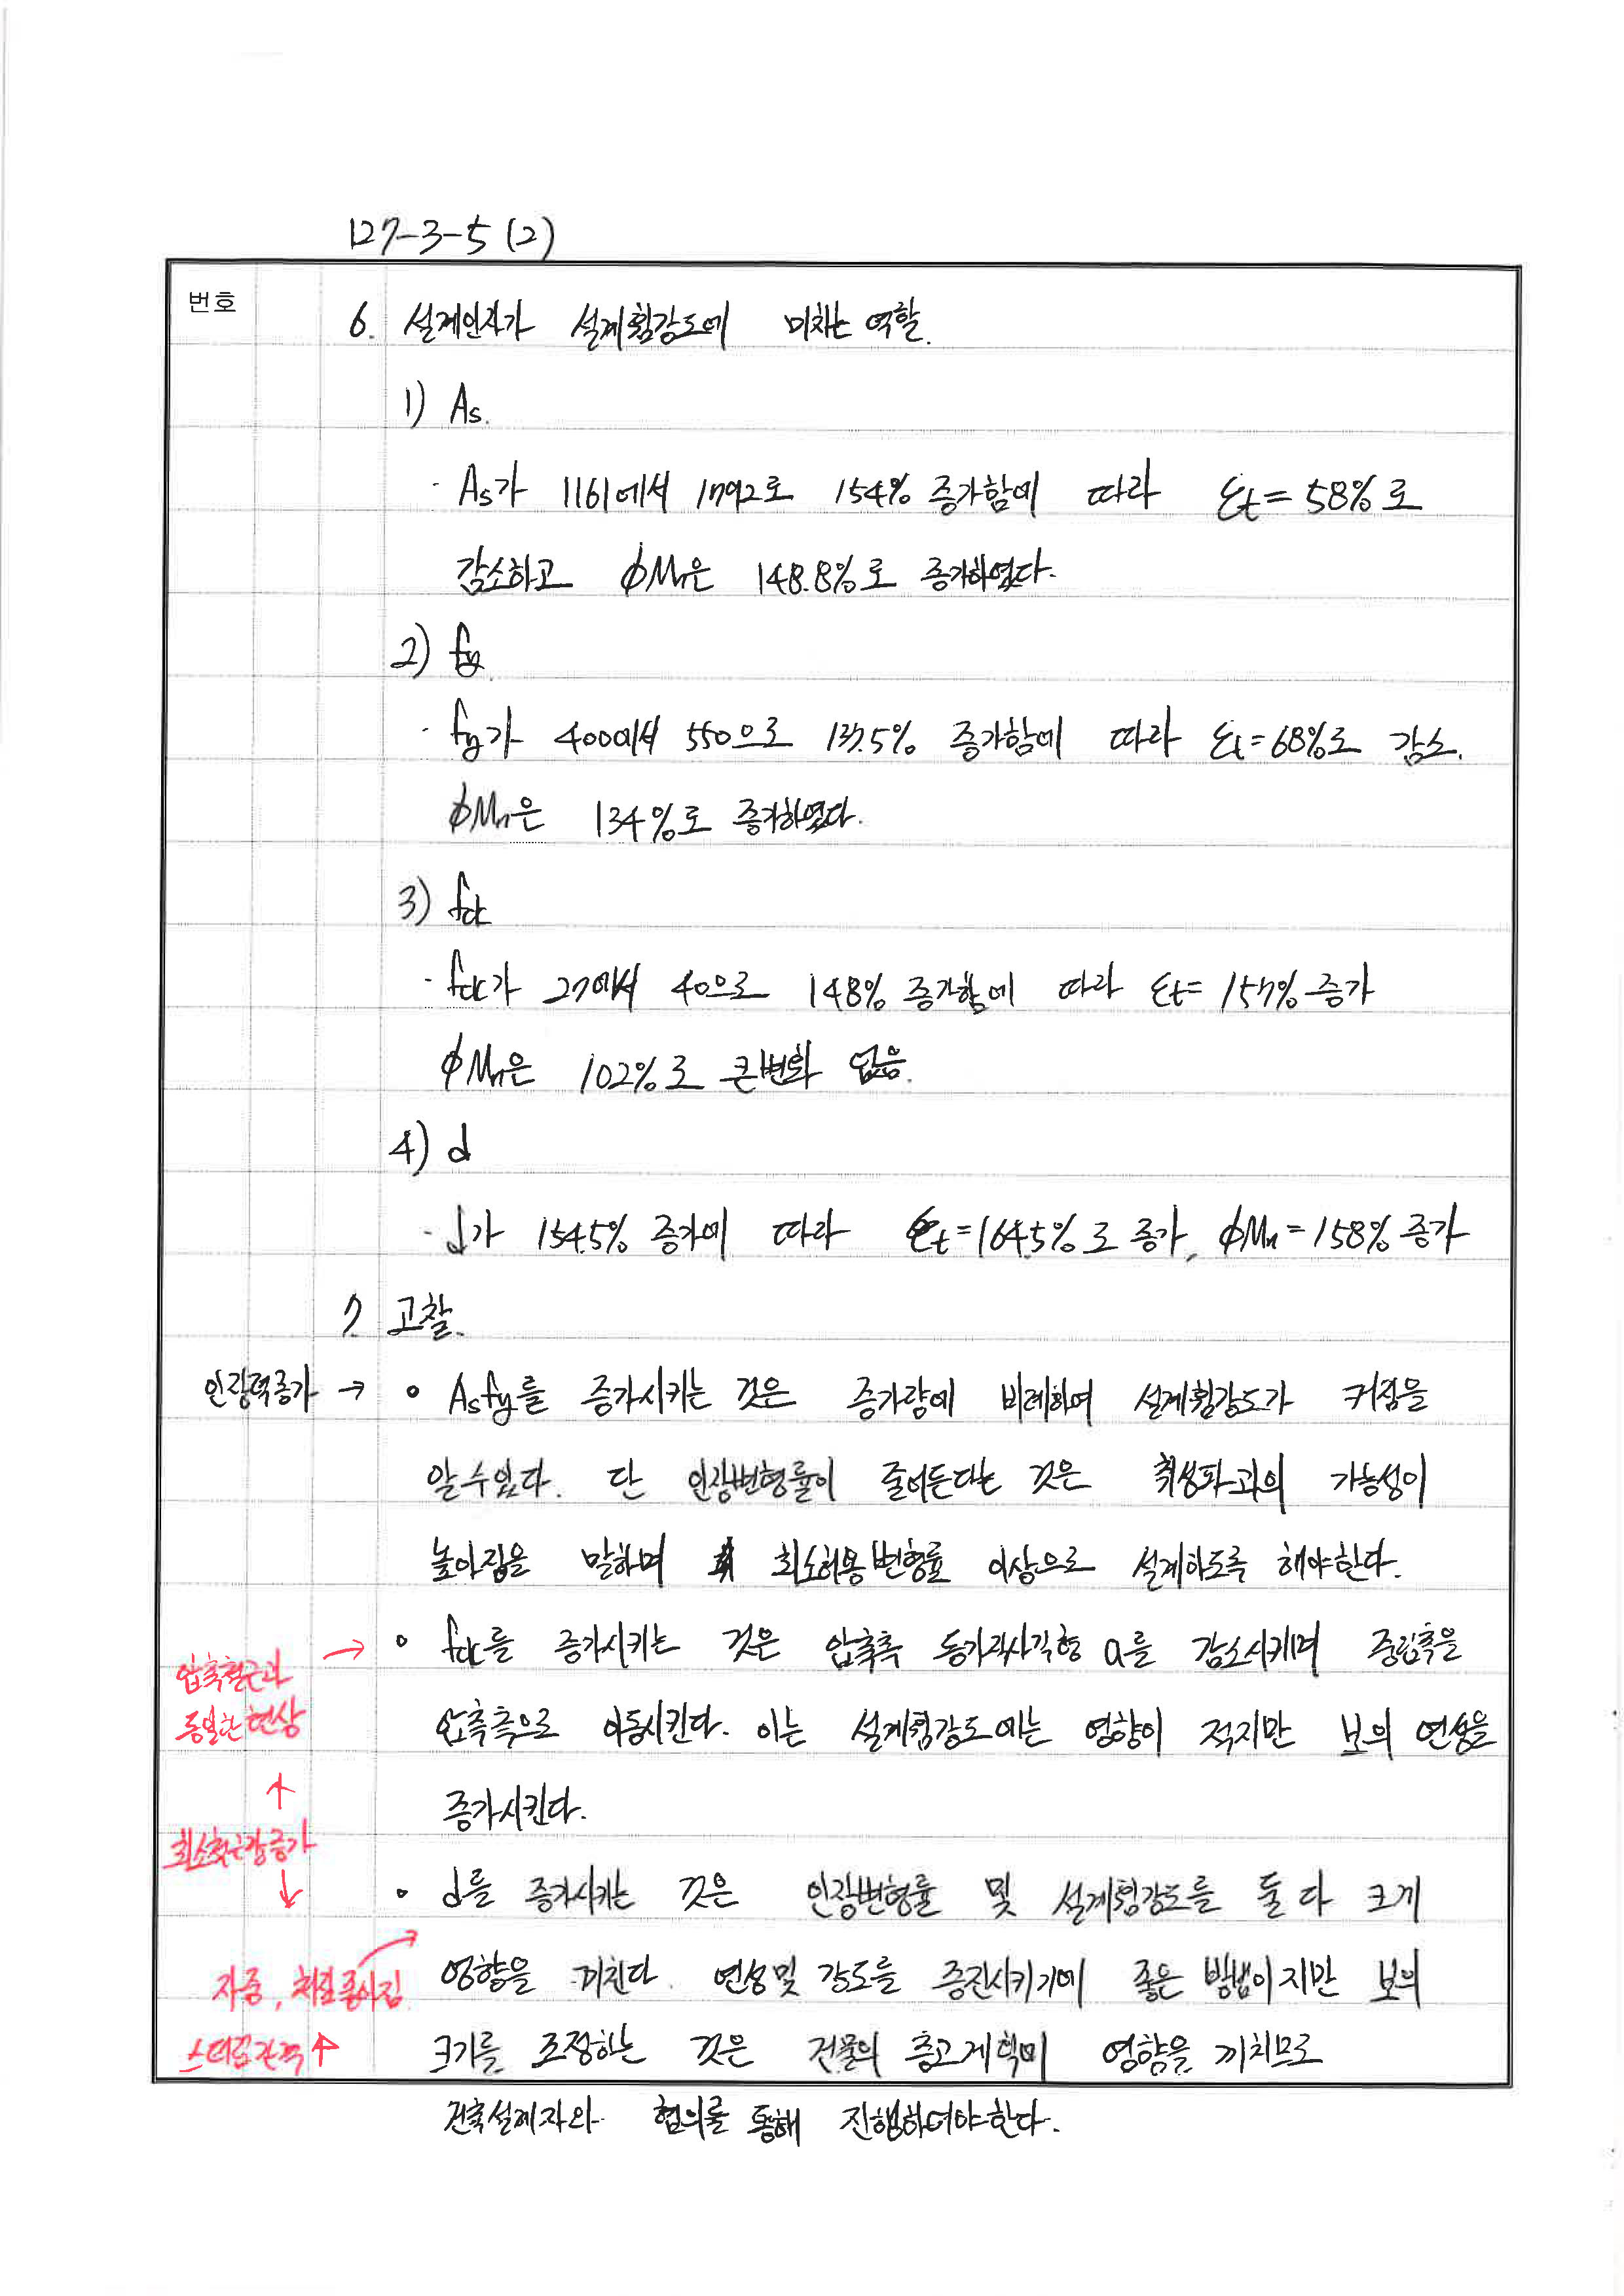 127-3-5 (2)
번호
6. 설계인자가 설계휨강도에 미치는 역할.
1) As.
· As가 1161에서 1792로 154% 증가함에 따라 εt = 58%로
감소하고 ϕMn은 148.8%로 증가하였다.
2) fy.
· fy가 400에서 550으로 137.5% 증가함에 따라 εt = 68%로 감소.
ϕMn은 134%로 증가하였다.
3) fck
· fck가 27에서 40으로 148% 증가함에 따라 εt = 157% 증가
ϕMn은 102%로 큰변화 없음.
4) d
· d가 154.5% 증가에 따라 εt = 164.5%로 증가, ϕMn = 158% 증가
7. 고찰.
인장력증가 → ∘ Asfy를 증가시키는 것은 증가량에 비례하여 설계휨강도가 커짐을
알수있다. 단 인장변형률이 줄어든다는 것은 취성파괴의 가능성이
높아짐을 말하며 최소허용변형률 이상으로 설계하도록 해야한다.
압축철근과 → ∘ fck를 증가시키는 것은 압축측 등가직사각형 a를 감소시키며 중립축을
동일한 현상 압축측으로 이동시킨다. 이는 설계휨강도에는 영향이 적지만 보의 연성을
↑ 증가시킨다.
최소철근량증가
↓ ∘ d를 증가시키는 것은 인장변형률 및 설계휨강도를 둘 다 크게
자중, 처짐줄어짐 영향을 끼친다. 연성및 강도를 증진시키기에 좋은 방법이지만 보의
스터럽간격↑ 크기를 조정하는 것은 건물의 층고계획에 영향을 끼치므로
건축설계자와 협의를 통해 진행하여야한다.